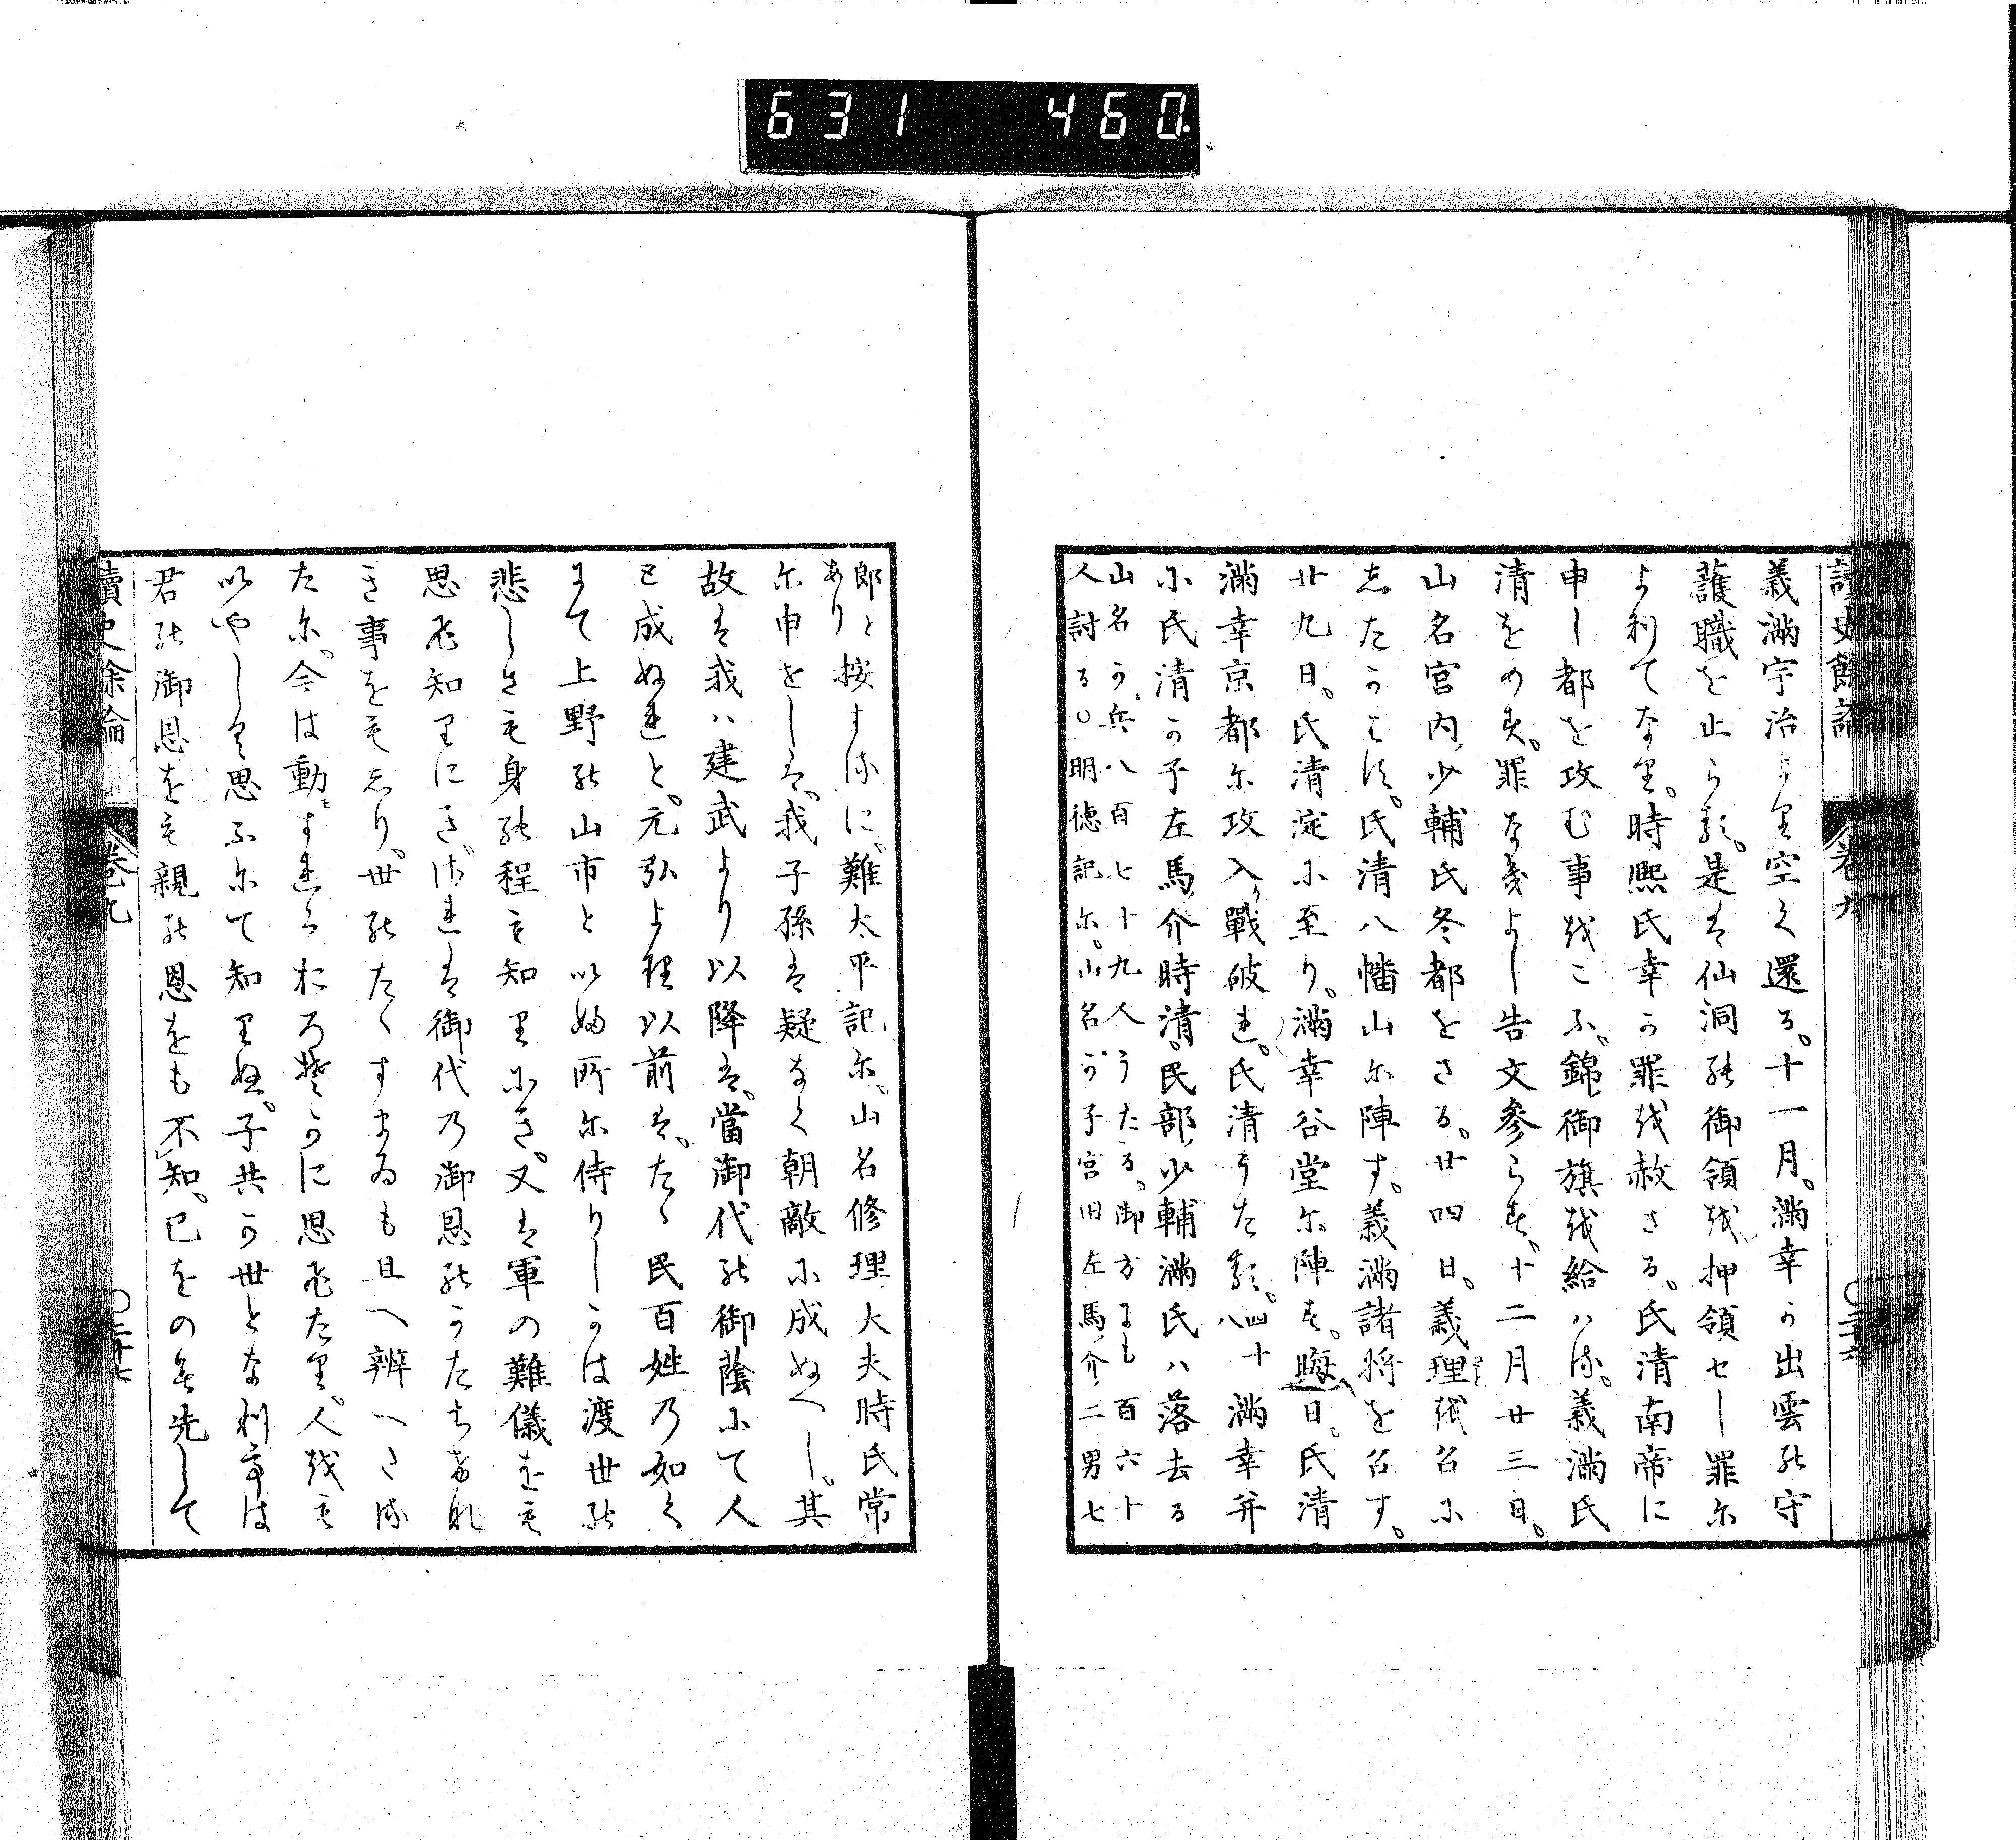 631 460
讀史餘論 卷九
義満宇治より空く還る。十一月。満幸か出雲の守
護職を止らる。是は仙洞の御領を押領セし罪に
よりてなり。時熙氏幸か罪を赦さる。氏清南帝に
申し都を攻む事をこふ。錦御旗を給ハる。義満氏
清をめす。罪なきよし告文参らす。十二月廿三日。
山名宮内少輔氏冬都をさる。廿四日。義理を召に
したかはす。氏清八幡山に陣す。義満諸将を召す。
廿九日。氏清淀に至り。満幸谷堂に陣す。晦日。氏清
満幸京都に攻入。戰破れ。氏清うたる。四十八 満幸并
に氏清か子左馬介時清。民部少輔満氏ハ落去る
山名か兵八百七十九人うたる。御方にも百六十
人討る〇明徳記に。山名か子宮田左馬介二男七
郎と
あり
按するに。難太平記に。山名修理大夫時氏常
に申せしは。我子孫は疑なく朝敵に成ぬへし。其
故は我ハ建武より以降は。當御代の御蔭にて人
と成ぬれと。元弘より以前は。たゝ民百姓の如く
にて上野の山市といふ所に侍りしかは渡世の
悲しさも身の程も知りにき。又は軍の難儀をも
思ひ知りにき。されは御代の御恩のかたちけな
き事をもしり。世のたゝすまゐも且ヘ辨へさる
たに。今は動すれはおろそかに思ひたり。人をも
いやしく思ふにて知りぬ。子共か世となりては
君の御恩をも親の恩をも不知。己をのミ先して
讀史餘論 卷九 〇二十七